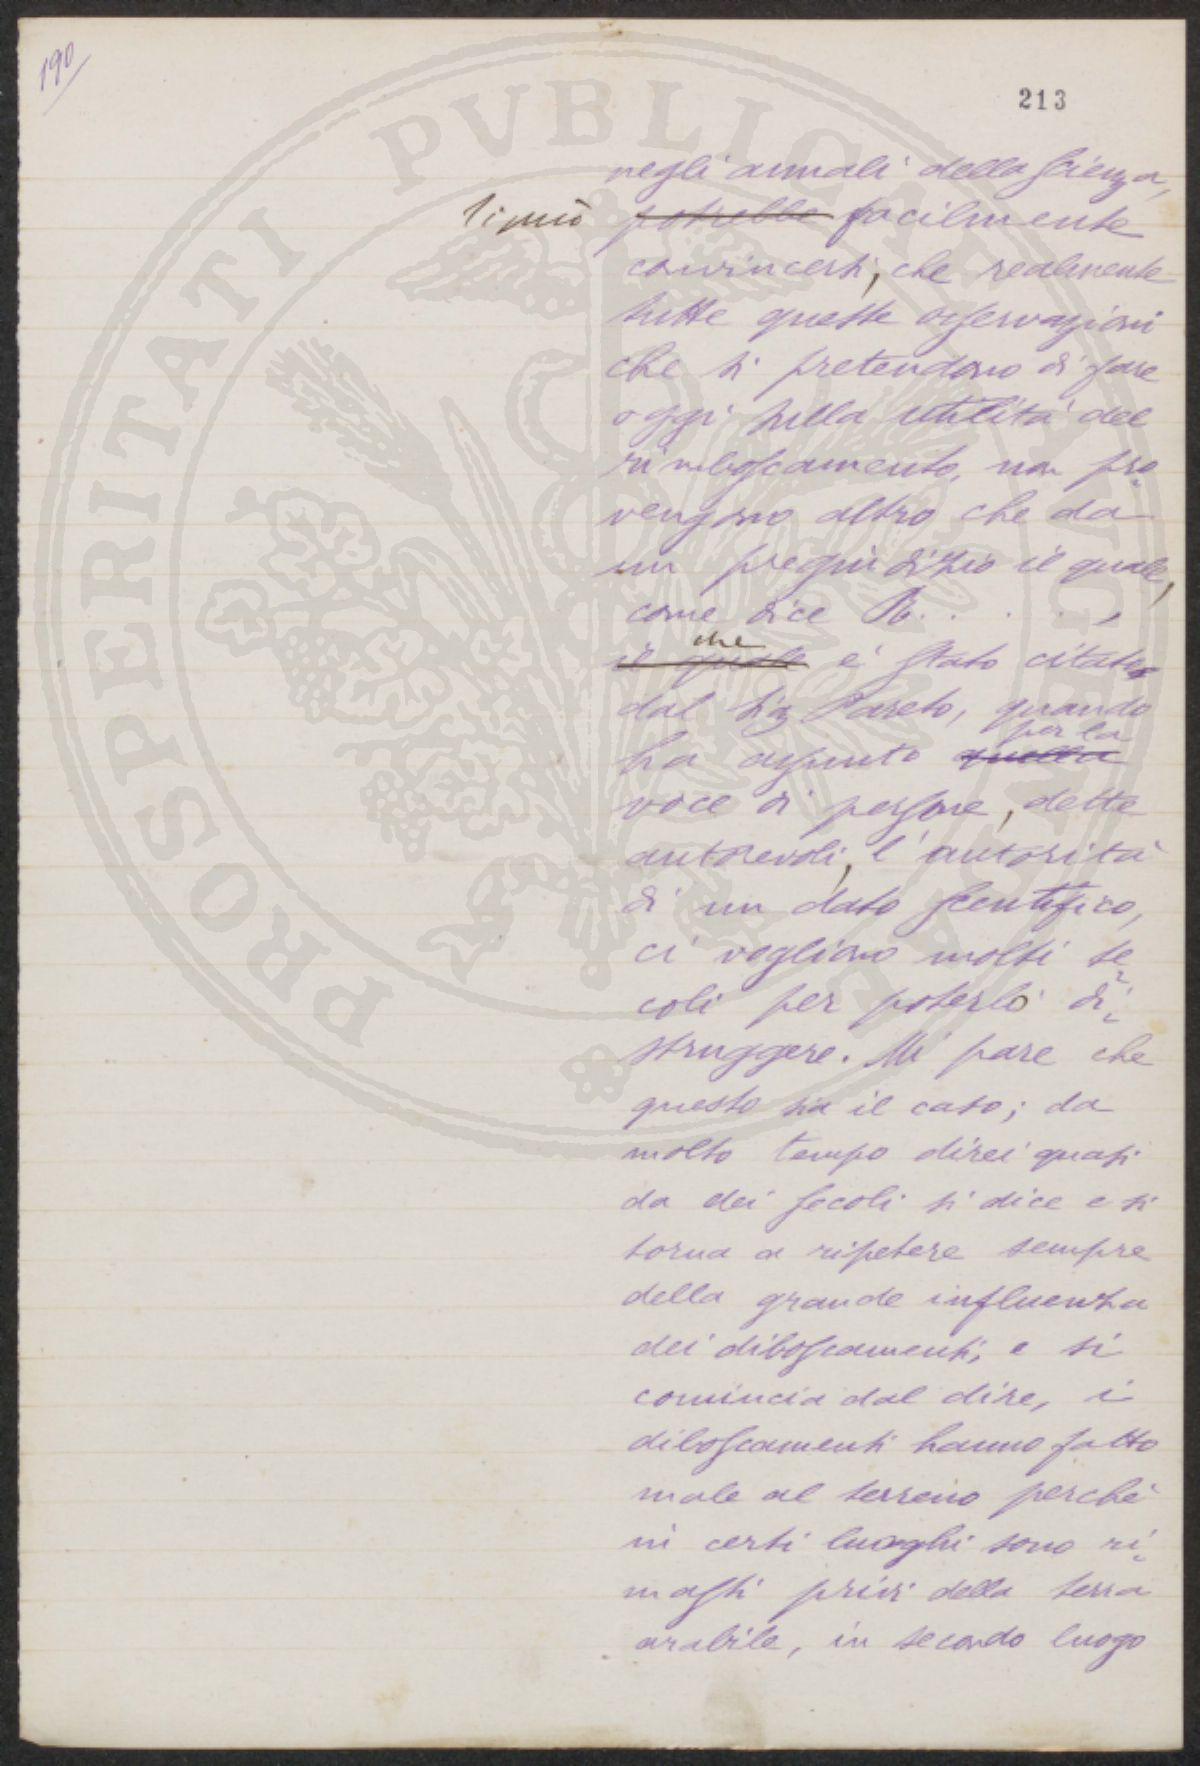 190
213
negli annali della scienza,
si può ~~potrebbe~~ facilmente
convincersi, che realmente
tutte queste osservazioni
che si pretendono di fare
oggi sulla utilità del
rimboscamento, non pro
vengono altro che da
un pregiudizio il quale,
come dice R. . . . . ,
che
~~il quale~~ è stato citato
dal Sig Pareto, quando
per la
ha assunto ~~quella~~
voce di persone, dette
autorevoli, l'autorità
di un dato scentifico,
ci vogliono molti se
coli per poterlo di
struggere. Mi pare che
questo sia il caso; da
molto tempo direi quasi
da dei secoli si dice e si
torna a ripetere sempre
della grande influenza
dei diboscamenti, e si
comincia dal dire, i
diboscamenti hanno fatto
male al terreno perchè
in certi luoghi sono ri
masti privi della terra
arabile, in secondo luogo
PROSPERITATI PVBLICAE AVGENDAE